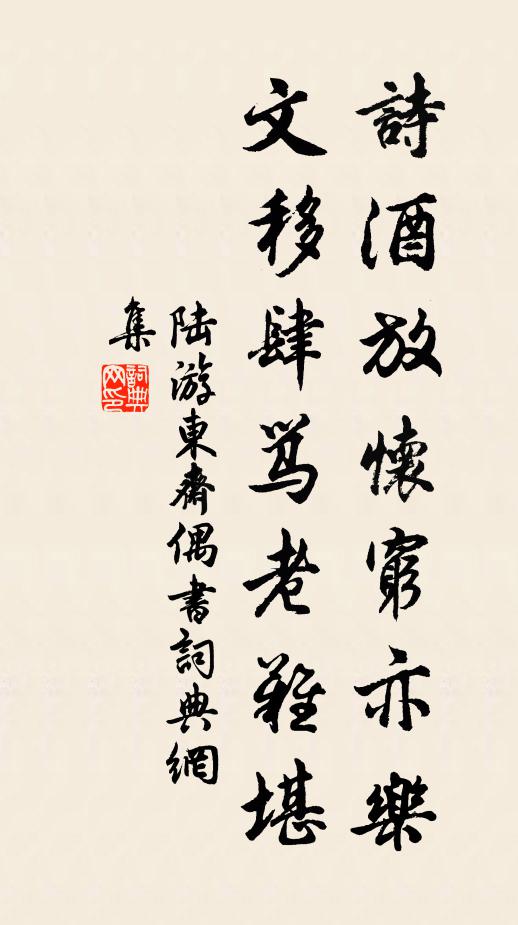 詩酒放懷窮亦樂
文移肆罵老難堪
陸游東齋偶書詞典網
集
詞典
网印